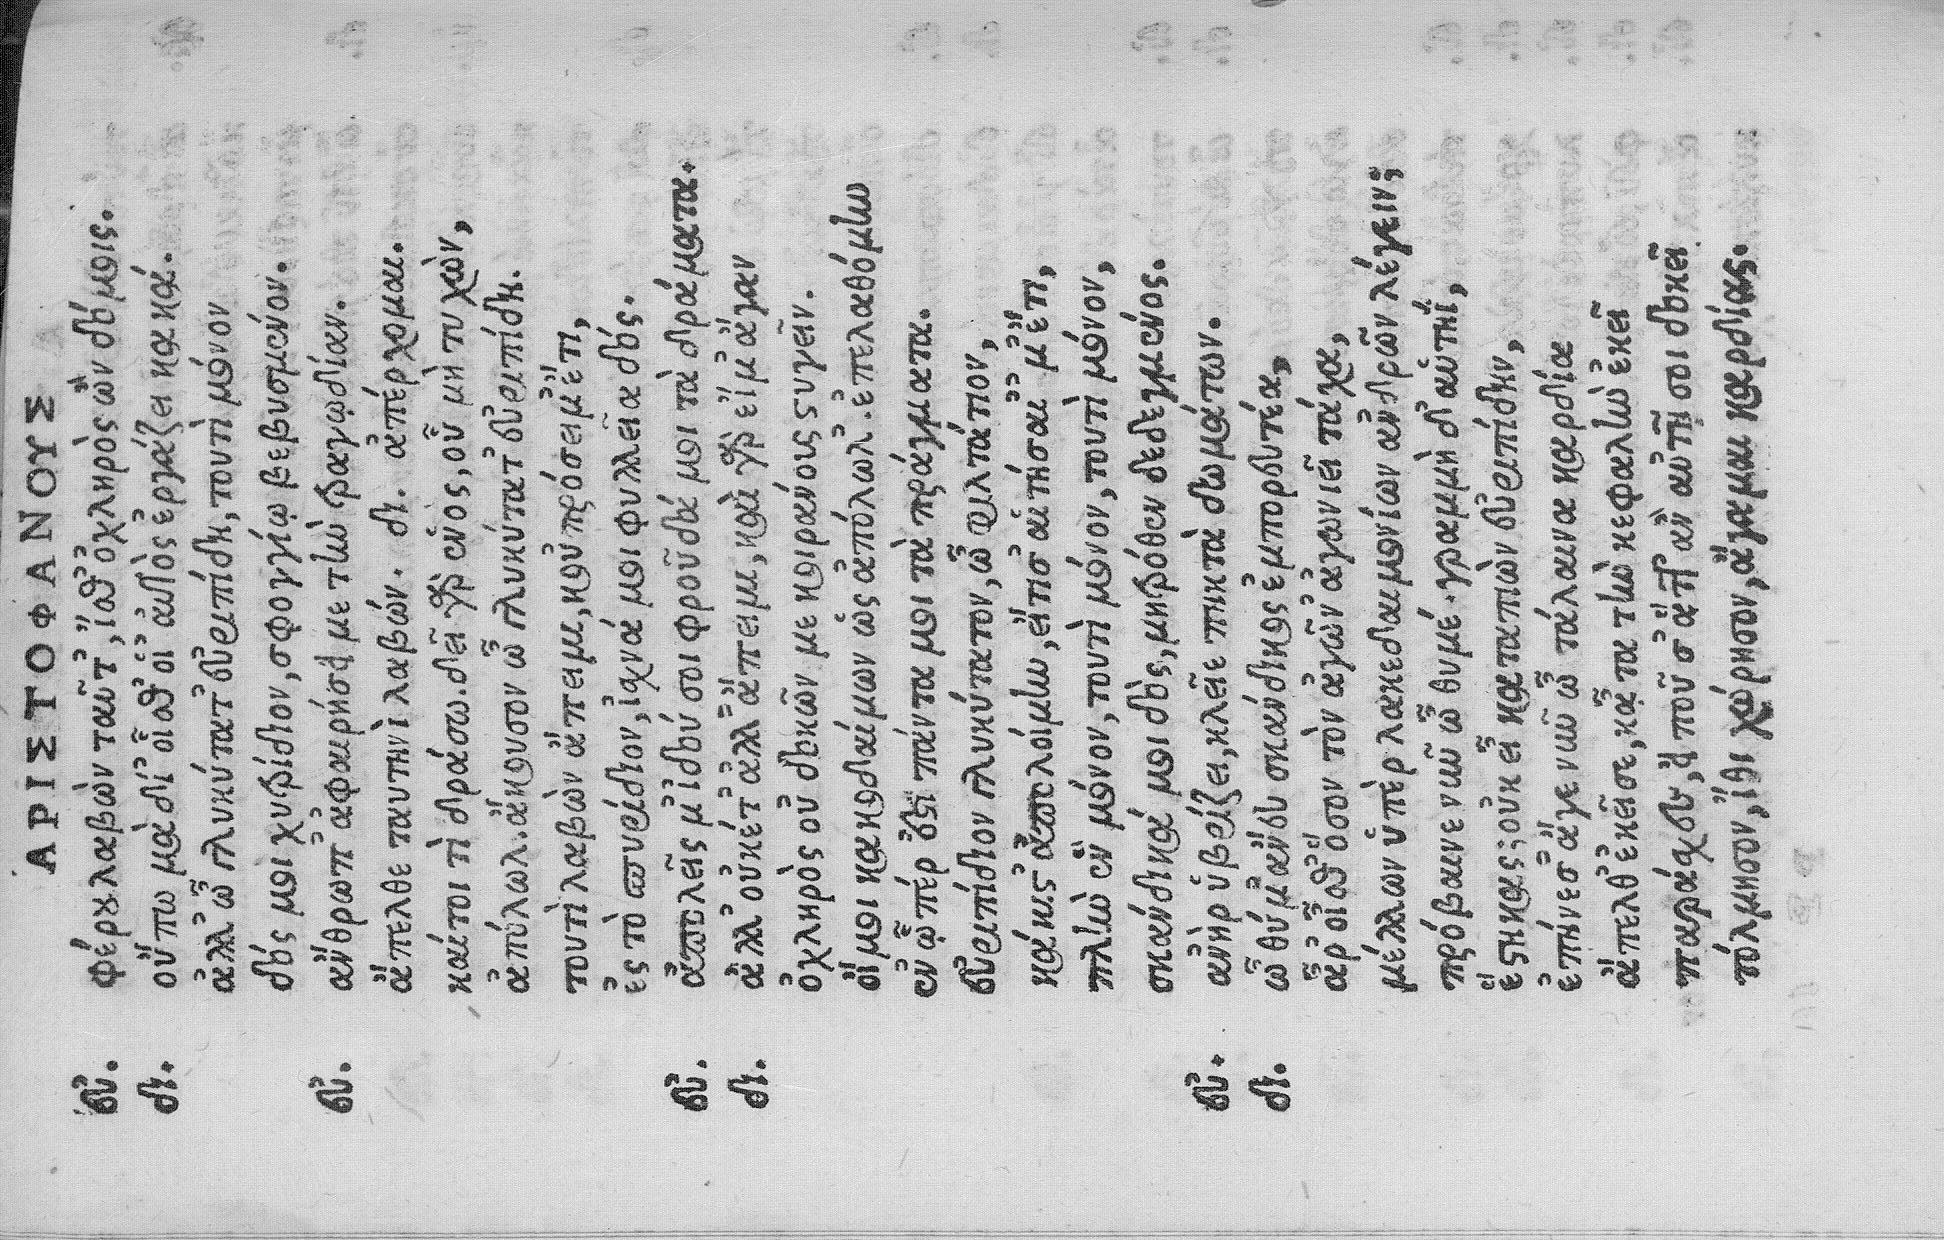 ΑΡΙΣΤΟΦΑΝΟΥΣ
ευ. φέρου λαβὼν ταῦτ', ἴσθ' ὀχληρὸς ὢν δόμοις.
δι. οὔπω μὰ δί' οἶσθ' οἷ' αὐτὸς ἐργάζει κακά.
ἀλλ' ὦ γλυκύτατ' εὐριπίδη, τουτὶ μόνον
δός μοι χυτρίδιον, σφογγίῳ βεβυσμένον.
ευ. ἄνθρωπ' ἀφαιρήσῃ με τὴν τραγῳδίαν.
ἄπελθε ταυτηνὶ λαβών. δι. ἀπέρχομαι.
καίτοι τί δράσω. δεῖ γὰρ ἑνὸς, οὗ μὴ τυχὼν,
ἀπόλωλ. ἄκουσον ὦ γλυκύτατ' εὐριπίδη.
τουτὶ λαβὼν ἄπειμι, κοὐ πρόσειμ' ἔτι,
ἐς τὸ σπυρίδιον, ἰσχνά μοι φυλλεῖα δός.
ευ. ἀπολεῖς μ' ἰδού σοι φροῦδά μοι τὰ δράματα.
δι. ἀλλ' οὐκέτ' ἀλλ' ἄπειμι, καὶ γὰρ εἴμ' ἄγαν
ὀχληρὸς οὐ δοκῶν με κοιράνους στυγεῖν.
οἴμοι κακοδαίμων ὡς ἀπόλωλ'. ἐπελαθόμην
ἐν ᾧπέρ ἐστι πάντα μοι τὰ πράγματα.
εὐριπίδιον γλυκύτατον, ὦ φιλτάτιον,
κάκιστ' ἀπολοίμην, εἴτι σ' αἰτήσαιμ' ἔτι,
πλὴν ἓν μόνον, τουτὶ μόνον, τουτὶ μόνον,
σκάνδικά μοι δὸς, μητρόθεν δεδεγμένος.
ευ. ἀνὴρ ὑβρίζει, κλεῖε πικτὰ δωμάτων.
δι. ὦ θύμ' ἄνευ σκάνδικος ἐμπορευτέα,
ἆρ' οἶσθ' ὅσον τὸν ἀγῶν' ἀγωνιεῖ τάχα,
μέλλων ὑπὲρ λακεδαιμονίων ἀνδρῶν λέγειν;
πρόβαινε νῦν ὦ θυμέ. γραμμὴ δ' αὑτηί,
ἕστηκας; οὐκ εἶ καταπιὼν εὐριπίδην,
ἐπῄνεσ' ἄγε νῦν ὦ τάλαινα καρδία
ἄπελθ' ἐκεῖσε, κᾆτα τὴν κεφαλὴν ἐκεῖ
παράσχου, εἰποῦσ' ἅττ' ἂν αὐτῇ σοι δοκεῖ
τόλμησον, ἴθι χώρησον, ἄγαμαι καρδίας.